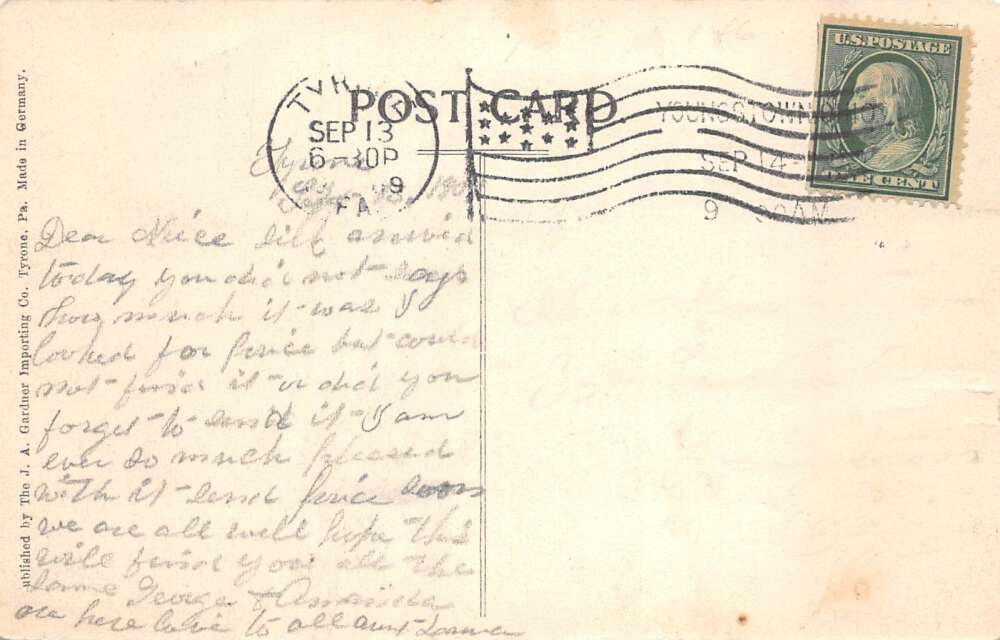 POST CARD
U.S. POSTAGE
ONE CENT
TYRONE
SEP 13
6-30P
9
PA.
YOUNGSTOWN, OHIO
SEP 14
9 30AM
Tyrone
Dear Niece arrived
today you did not say
how much it was I
looked for price but could
not find it or did you
forget to send it I am
ever so much pleased
with it send price soon
we are all well hope this
will find you all the
same George & Amanda
are here love to all aunt
Published by The J. A. Gardner Importing Co. Tyrone, Pa. Made in Germany.